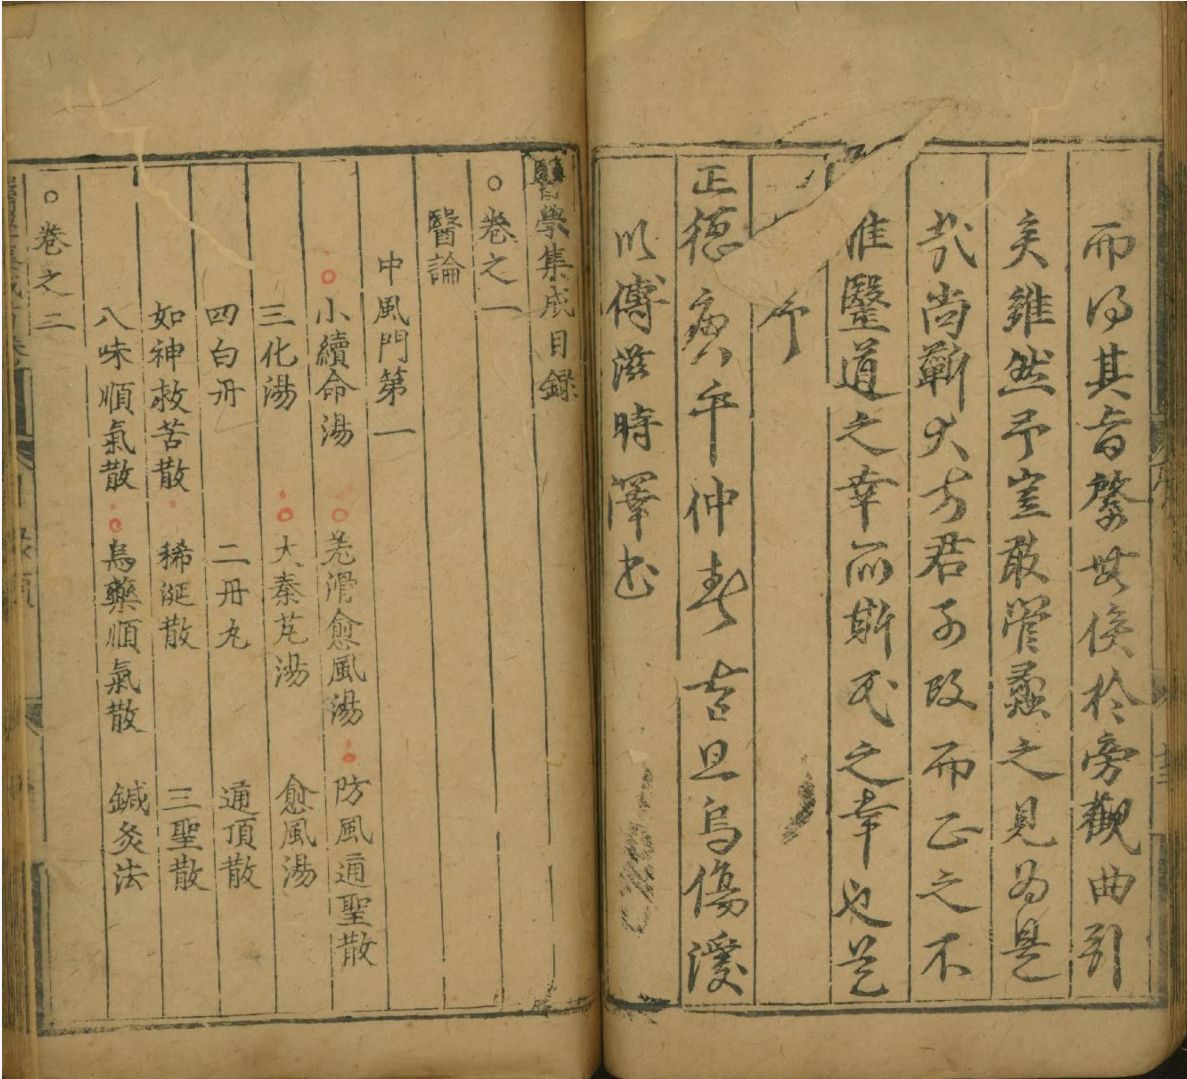 而得其旨罄無俟於旁觀曲引
矣雖然予豈敢管蠡之見為是
哉尚蘄大方君子改而正之不
惟醫道之幸而斯民之幸也是
序
正德庚午仲春吉旦烏傷溪
以傅滋時澤書
醫學集成目錄
○卷之一
醫論
中風門第一
小續命湯 羌滑愈風湯 防風通聖散
三化湯 大秦艽湯 愈風湯
四白丹 二丹丸 通頂散
如神救苦散 稀涎散 三聖散
八味順氣散 烏藥順氣散 鍼灸法
○卷之二